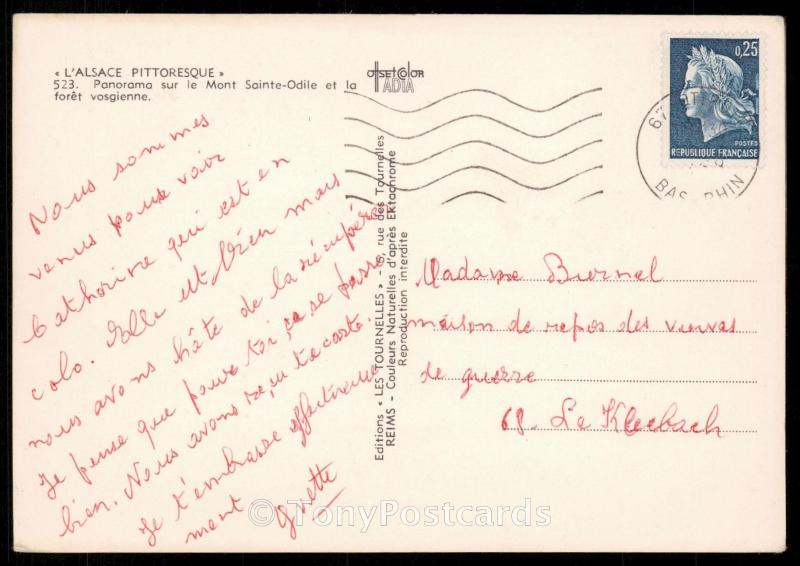 « L'ALSACE PITTORESQUE »
523. Panorama sur le Mont Sainte-Odile et la
forêt vosgienne.
OFFSETCOLOR
IADIA
0,25
POSTES
REPUBLIQUE FRANÇAISE
67
BAS RHIN
Nous sommes
venus pour voir
Catherine qui est en
colo. Elle est bien mais
nous avons hâte de la récupérer
Je pense que pour toi, ça se passe
bien. Nous avons reçu ta carte.
Je t'embrasse affectueuse
ment
Yvette
Editions « LES TOURNELLES » - 6, rue des Tournelles
REIMS - Couleurs Naturelles d'après Ektachrome
Reproduction interdite
Madame Burnel
maison de repos des veuves
de guerre
68. Le Kleebach
©TonyPostcards